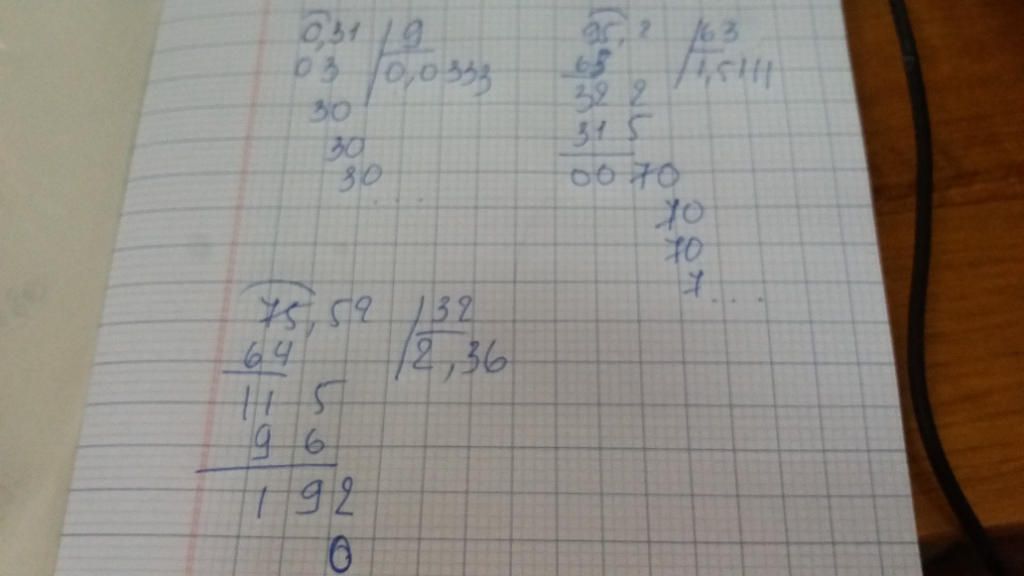 0,31 9
03 0,0333
30
30
30
....
95,2 63
63 1,5111
32 2
31 5
00 70
70
70
7....
75,52 32
64 2,36
11 5
9 6
1 92
0